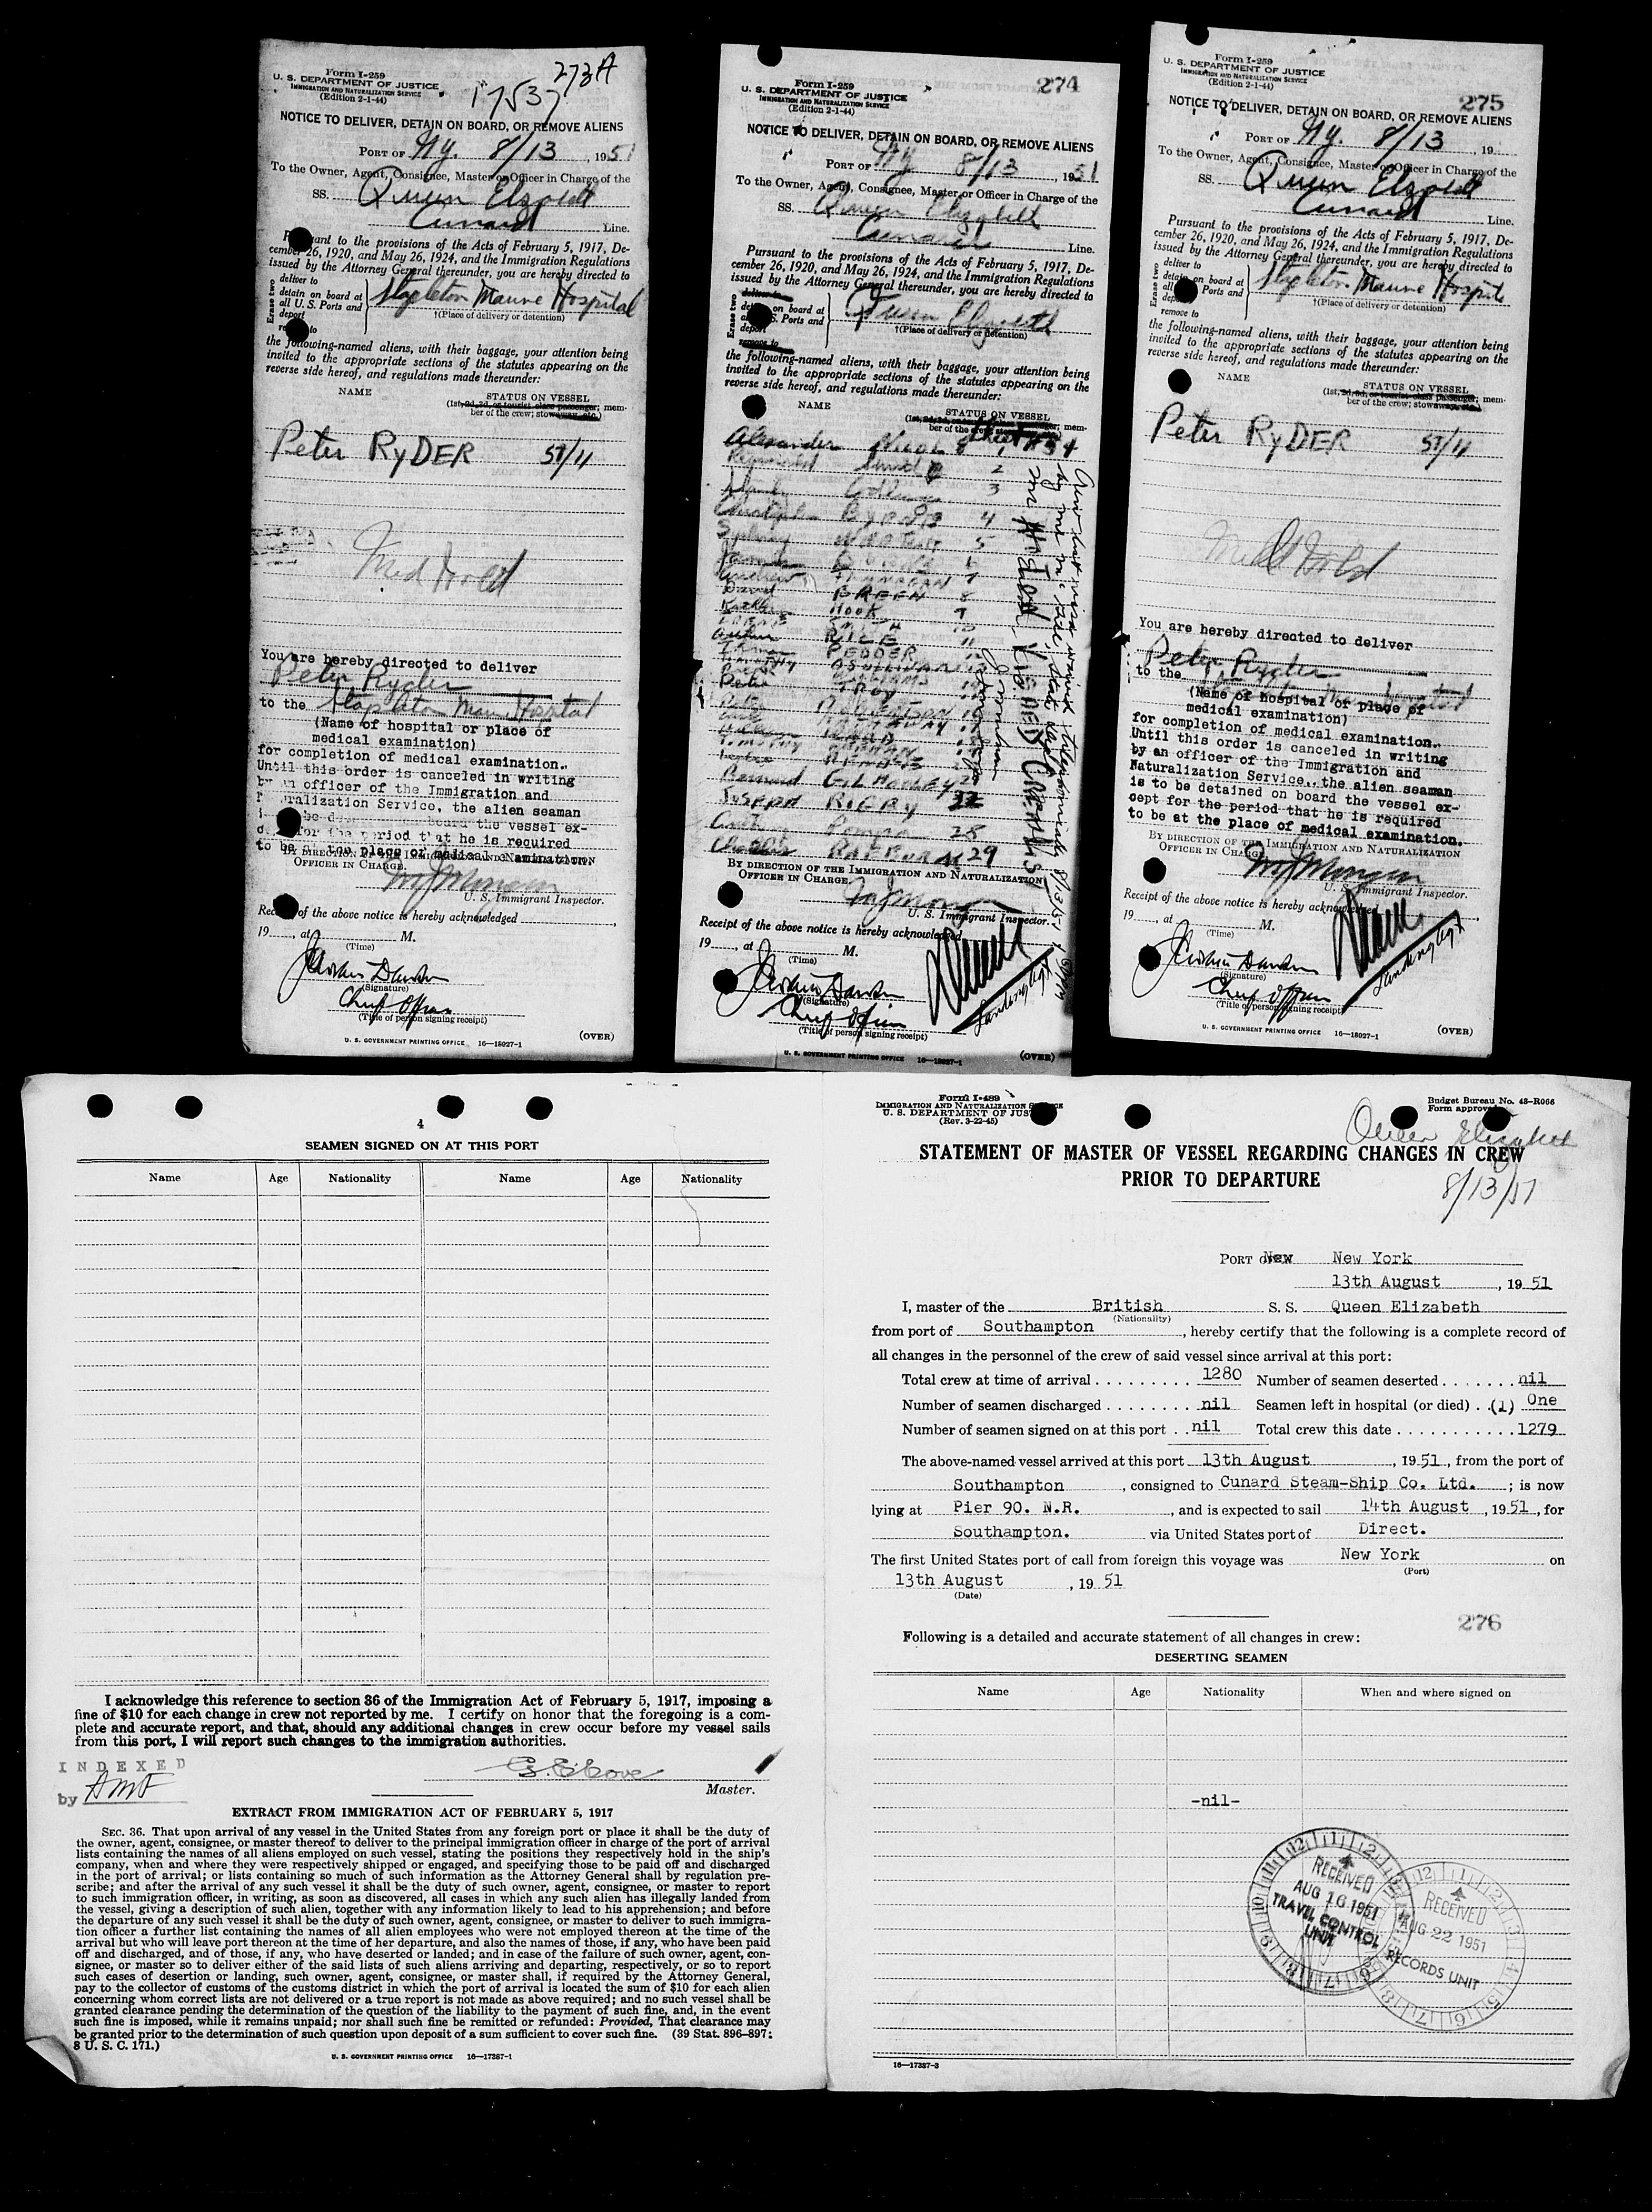 273A
17537
Form I-259
U. S. DEPARTMENT OF JUSTICE
IMMIGRATION AND NATURALIZATION SERVICE
(Edition 2-1-44)
NOTICE TO DELIVER, DETAIN ON BOARD, OR REMOVE ALIENS
PORT OF N.Y. 8/13, 1951
To the Owner, Agent, Consignee, Master or Officer in Charge of the
SS. Queen
Cunard Line.
Pursuant to the provisions of the Acts of February 5, 1917, De-
cember 26, 1920, and May 26, 1924, and the Immigration Regulations
issued by the Attorney General thereunder, you are hereby directed to
Erase two
deliver to
detain on board at
all U. S. Ports and
deport
remove to
Stapleton Marine Hospital
†(Place of delivery or detention)
the following-named aliens, with their baggage, your attention being
invited to the appropriate sections of the statutes appearing on the
reverse side hereof, and regulations made thereunder:
NAME STATUS ON VESSEL
(1st, 2d, 3d, or tourist class passenger; mem-
ber of the crew; stowaway, etc.)
Peter RyDER 57/11
Med Hold
You are hereby directed to deliver
Peter Ryder
to the Stapleton Marine Hospital
(Name of hospital or place of
medical examination)
for completion of medical examination.
Until this order is canceled in writing
by an officer of the Immigration and
Naturalization Service, the alien seaman
board the vessel ex-
for the period that he is required
to be at the place of medical examination.
BY DIRECTION OF THE IMMIGRATION AND NATURALIZATION
OFFICER IN CHARGE.
U. S. Immigrant Inspector.
Receipt of the above notice is hereby acknowledged
19 , at M.
(Time)
(Signature)
Chief Officer
(Title of person signing receipt)
U. S. GOVERNMENT PRINTING OFFICE 16—18027-1 (OVER)
274
Form I-259
U. S. DEPARTMENT OF JUSTICE
IMMIGRATION AND NATURALIZATION SERVICE
(Edition 2-1-44)
NOTICE TO DELIVER, DETAIN ON BOARD, OR REMOVE ALIENS
PORT OF NY 8/13, 1951
To the Owner, Agent, Consignee, Master or Officer in Charge of the
SS. Queen Elizabeth
Cunard Line.
Pursuant to the provisions of the Acts of February 5, 1917, De-
cember 26, 1920, and May 26, 1924, and the Immigration Regulations
issued by the Attorney General thereunder, you are hereby directed to
Erase two
deliver to
on board at
all U. S. Ports and
deport
remove to
Queen Elizabeth
†(Place of delivery or detention)
the following-named aliens, with their baggage, your attention being
invited to the appropriate sections of the statutes appearing on the
reverse side hereof, and regulations made thereunder:
NAME STATUS ON VESSEL
(1st, 2d, 3d, or tourist class passenger; mem-
ber of the crew; stowaway, etc.)
Alexander Nicol
2
3
4
5
6
7
BREEN 8
HOOK 9
SMITH 10
RICE 11
PEDDER 12
O'SULLIVAN 13
TROY
Bernard GILHOOLEY
JOSEPH RIGBY
28
29
BY DIRECTION OF THE IMMIGRATION AND NATURALIZATION
OFFICER IN CHARGE.
U. S. Immigrant Inspector.
Receipt of the above notice is hereby acknowledged
19 , at M.
(Time)
(Signature)
Chief Officer
(Title of person signing receipt)
Landing Agt
U. S. GOVERNMENT PRINTING OFFICE 16—18027-1 (OVER)
275
Form I-259
U. S. DEPARTMENT OF JUSTICE
IMMIGRATION AND NATURALIZATION SERVICE
(Edition 2-1-44)
NOTICE TO DELIVER, DETAIN ON BOARD, OR REMOVE ALIENS
PORT OF N.Y. 8/13, 19
To the Owner, Agent, Consignee, Master or Officer in Charge of the
SS. Queen
Cunard Line.
Pursuant to the provisions of the Acts of February 5, 1917, De-
cember 26, 1920, and May 26, 1924, and the Immigration Regulations
issued by the Attorney General thereunder, you are hereby directed to
Erase two
deliver to
detain on board at
all U. S. Ports and
deport
remove to
Stapleton Marine
†(Place of delivery or detention)
the following-named aliens, with their baggage, your attention being
invited to the appropriate sections of the statutes appearing on the
reverse side hereof, and regulations made thereunder:
NAME STATUS ON VESSEL
(1st, 2d, 3d, or tourist class passenger; mem-
ber of the crew; stowaway, etc.)
Peter RyDER 57/11
Med Hold
You are hereby directed to deliver
Peter Ryder
to the
(Name of hospital or place of
medical examination)
for completion of medical examination.
Until this order is canceled in writing
by an officer of the Immigration and
Naturalization Service, the alien seaman
is to be detained on board the vessel ex-
cept for the period that he is required
to be at the place of medical examination.
BY DIRECTION OF THE IMMIGRATION AND NATURALIZATION
OFFICER IN CHARGE.
U. S. Immigrant Inspector.
Receipt of the above notice is hereby acknowledged
19 , at M.
(Time)
(Signature)
Chief Officer
(Title of person signing receipt)
Landing Agt
U. S. GOVERNMENT PRINTING OFFICE 16—18027-1 (OVER)
4
SEAMEN SIGNED ON AT THIS PORT
Name Age Nationality Name Age Nationality
I acknowledge this reference to section 36 of the Immigration Act of February 5, 1917, imposing a
fine of $10 for each change in crew not reported by me. I certify on honor that the foregoing is a com-
plete and accurate report, and that, should any additional changes in crew occur before my vessel sails
from this port, I will report such changes to the immigration authorities.
INDEXED
by AMF
G. E. Cove
Master.
EXTRACT FROM IMMIGRATION ACT OF FEBRUARY 5, 1917
SEC. 36. That upon arrival of any vessel in the United States from any foreign port or place it shall be the duty of
the owner, agent, consignee, or master thereof to deliver to the principal immigration officer in charge of the port of arrival
lists containing the names of all aliens employed on such vessel, stating the positions they respectively hold in the ship's
company, when and where they were respectively shipped or engaged, and specifying those to be paid off and discharged
in the port of arrival; or lists containing so much of such information as the Attorney General shall by regulation pre-
scribe; and after the arrival of any such vessel it shall be the duty of such owner, agent, consignee, or master to report
to such immigration officer, in writing, as soon as discovered, all cases in which any such alien has illegally landed from
the vessel, giving a description of such alien, together with any information likely to lead to his apprehension; and before
the departure of any such vessel it shall be the duty of such owner, agent, consignee, or master to deliver to such immigra-
tion officer a further list containing the names of all alien employees who were not employed thereon at the time of the
arrival but who will leave port thereon at the time of her departure, and also the names of those, if any, who have been paid
off and discharged, and of those, if any, who have deserted or landed; and in case of the failure of such owner, agent, con-
signee, or master so to deliver either of the said lists of such aliens arriving and departing, respectively, or so to report
such cases of desertion or landing, such owner, agent, consignee, or master shall, if required by the Attorney General,
pay to the collector of customs of the customs district in which the port of arrival is located the sum of $10 for each alien
concerning whom correct lists are not delivered or a true report is not made as above required; and no such vessel shall be
granted clearance pending the determination of the question of the liability to the payment of such fine, and, in the event
such fine is imposed, while it remains unpaid; nor shall such fine be remitted or refunded: Provided, That clearance may
be granted prior to the determination of such question upon deposit of a sum sufficient to cover such fine. (39 Stat. 896–897;
8 U. S. C. 171.)
U. S. GOVERNMENT PRINTING OFFICE 16—17387-1
Form I-489
IMMIGRATION AND NATURALIZATION SERVICE
U. S. DEPARTMENT OF JUSTICE
(Rev. 3-22-45)
Budget Bureau No. 43-R066
Form approved
Queen Elizabeth
STATEMENT OF MASTER OF VESSEL REGARDING CHANGES IN CREW
PRIOR TO DEPARTURE
8/13/51
PORT OF New New York
13th August, 1951
I, master of the British S. S. Queen Elizabeth
(Nationality)
from port of Southampton, hereby certify that the following is a complete record of
all changes in the personnel of the crew of said vessel since arrival at this port:
Total crew at time of arrival . . . . . . . . . 1280 Number of seamen deserted . . . . . . . nil
Number of seamen discharged . . . . . . . . nil Seamen left in hospital (or died) . . (1) One
Number of seamen signed on at this port . . nil Total crew this date . . . . . . . . . . . 1279
The above-named vessel arrived at this port 13th August, 1951, from the port of
Southampton, consigned to Cunard Steam-Ship Co. Ltd. ; is now
lying at Pier 90. N.R., and is expected to sail 14th August, 1951, for
Southampton. via United States port of Direct.
The first United States port of call from foreign this voyage was New York on
(Port)
13th August, 19 51
(Date)
276
Following is a detailed and accurate statement of all changes in crew:
DESERTING SEAMEN
Name Age Nationality When and where signed on
-nil-
RECEIVED
AUG 16 1951
TRAVEL CONTROL
UNIT
RECEIVED
AUG 22 1951
RECORDS UNIT
16—17387-3